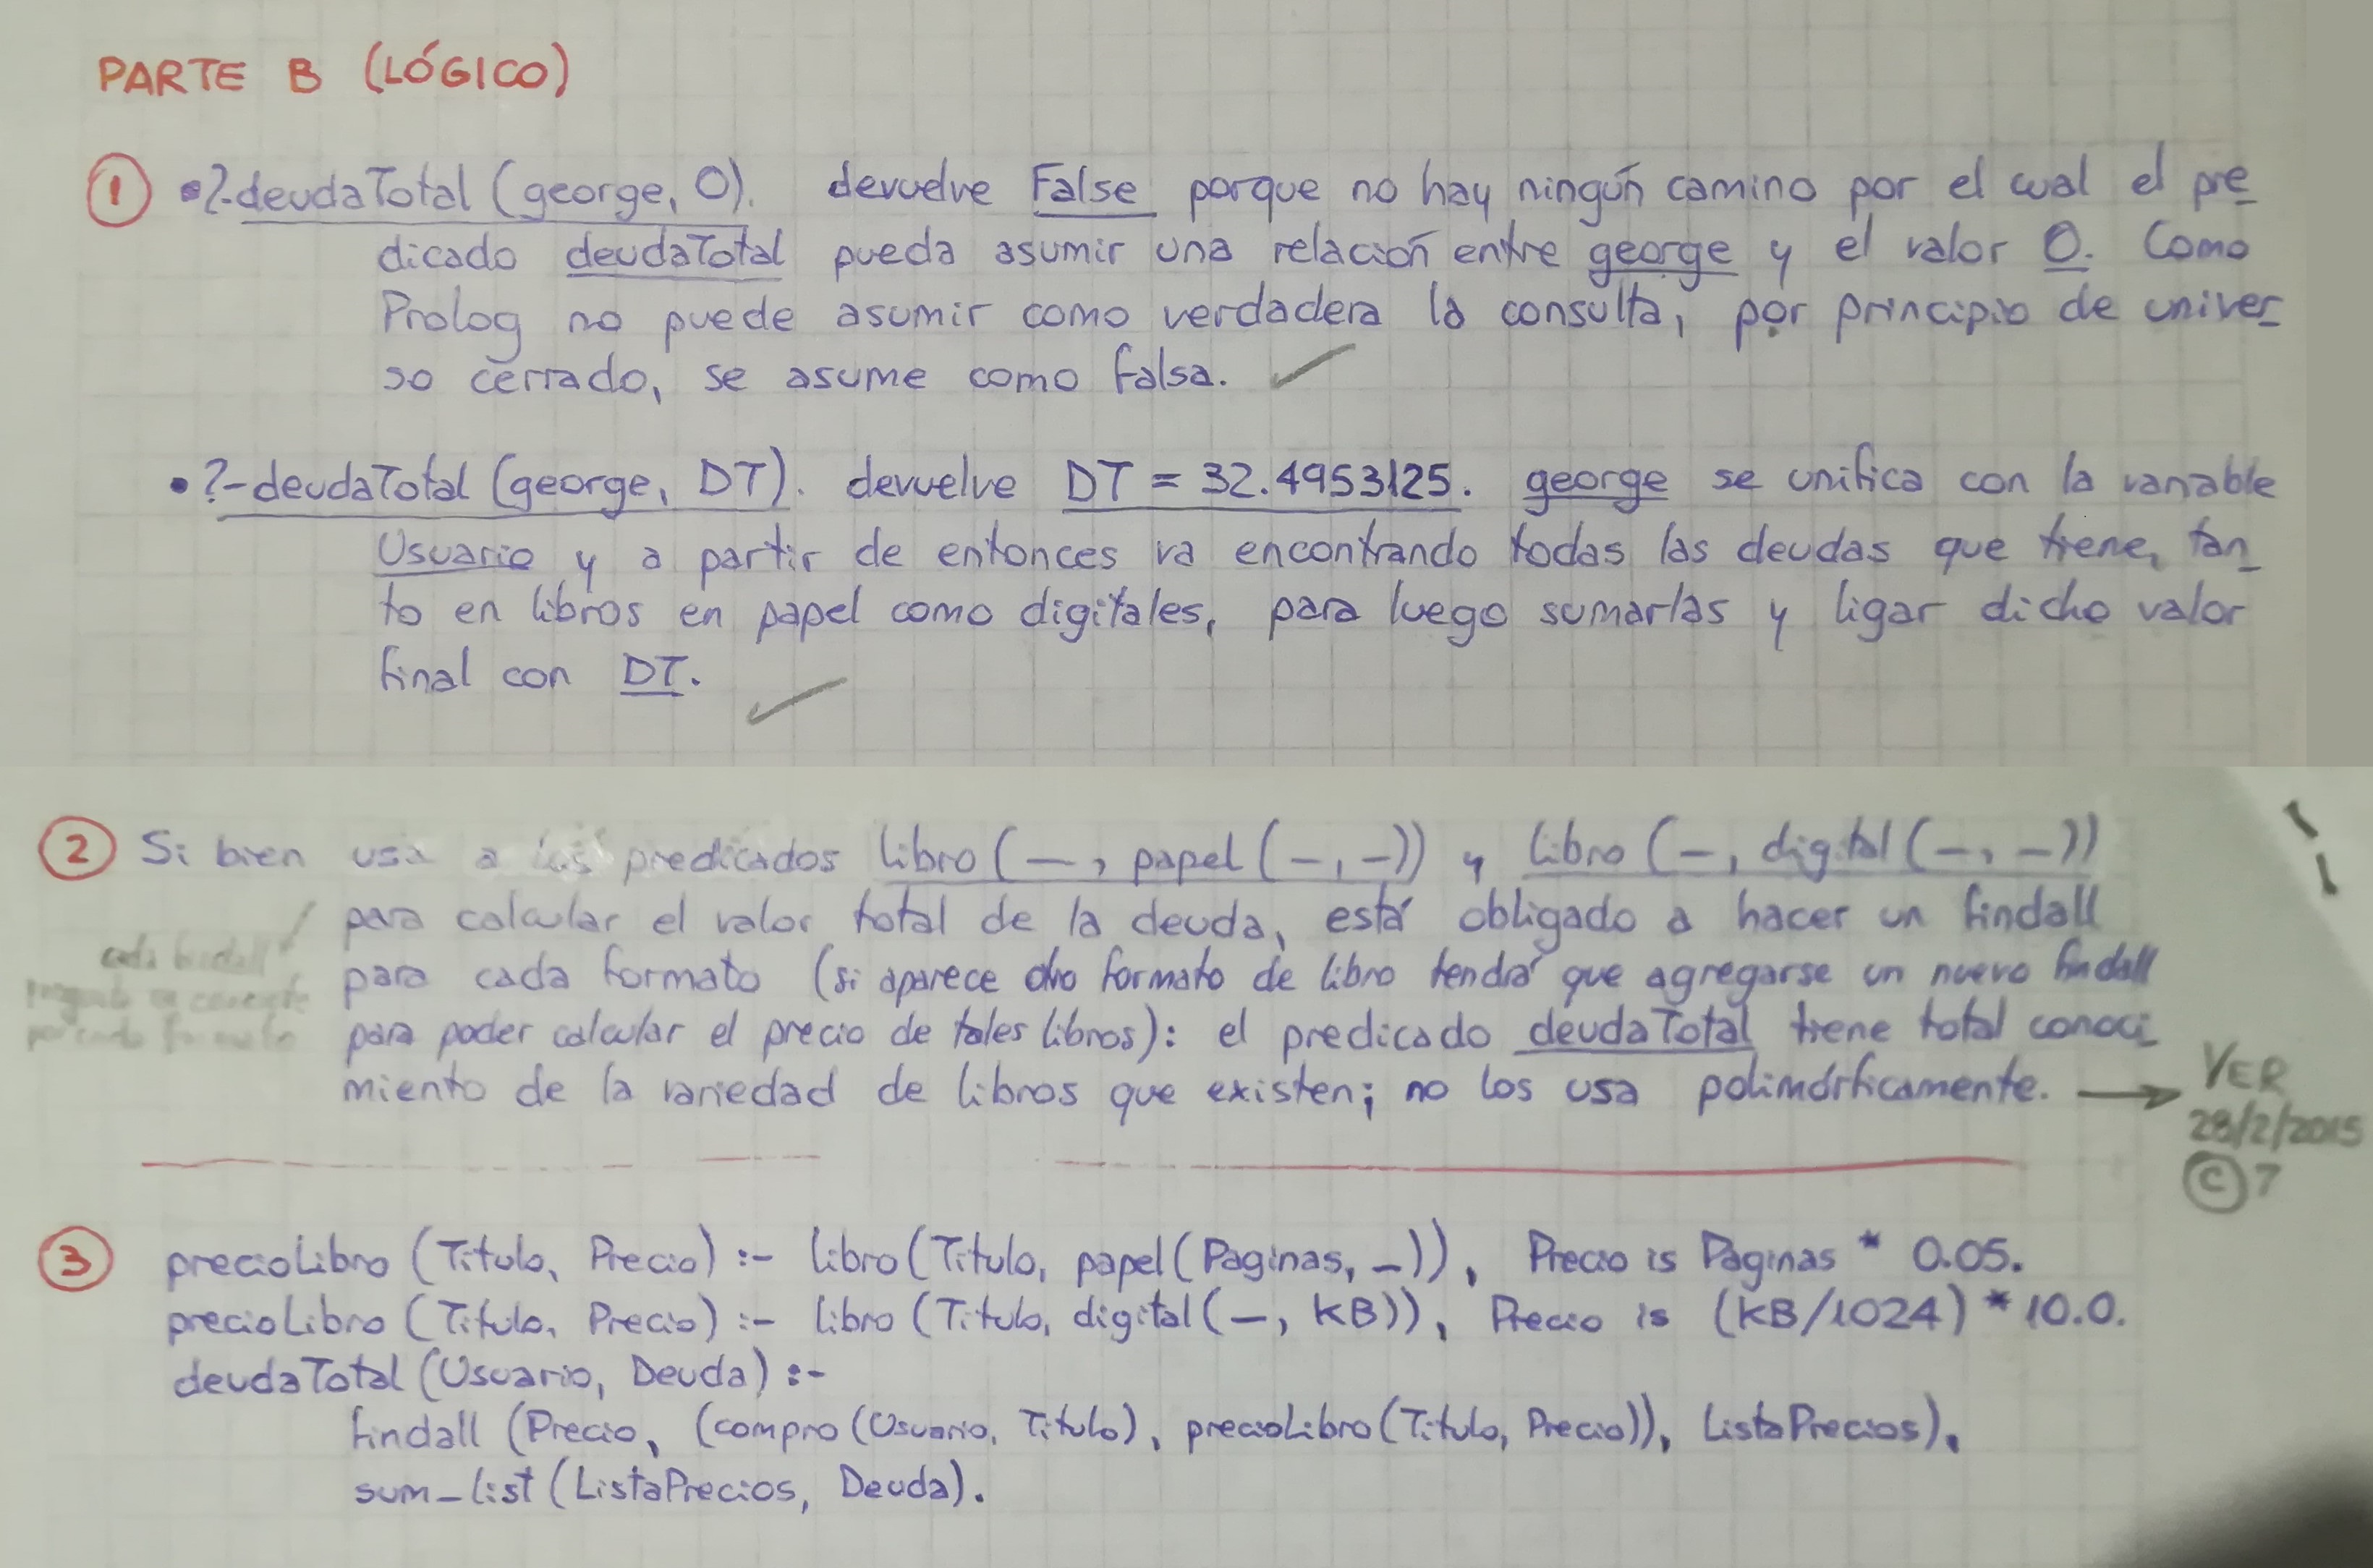 PARTE B (LÓGICO)
① •?-deudaTotal (george, 0). devuelve False porque no hay ningún camino por el cual el pre
dicado deudaTotal pueda asumir una relación entre george y el valor 0. Como
Prolog no puede asumir como verdadera la consulta, por principio de univer
so cerrado, se asume como falsa. ✓
• ?-deudaTotal (george, DT). devuelve DT = 32.4953125. george se unifica con la variable
Usuario y a partir de entonces va encontrando todas las deudas que tiene, tan
to en libros en papel como digitales, para luego sumarlas y ligar dicho valor
final con DT.
✓
② Si bien usa a los predicados libro (_, papel (_, _)) y libro (_, digital (_, _))
para calcular el valor total de la deuda, está obligado a hacer un findall
para cada formato (si aparece otro formato de libro tendrá que agregarse un nuevo findall
para poder calcular el precio de tales libros): el predicado deudaTotal tiene total conoci
miento de la variedad de libros que existen; no los usa polimórficamente. →
cada findall
por cada formato
VER
28/2/2015
Ⓒ 7
③ precioLibro (Titulo, Precio) :- libro (Titulo, papel (Paginas, _)), Precio is Paginas * 0.05.
precioLibro (Titulo, Precio) :- libro (Titulo, digital (_, KB)), Precio is (KB/1024) * 10.0.
deudaTotal (Usuario, Deuda) :-
findall (Precio, (compro (Usuario, Titulo), precioLibro (Titulo, Precio)), ListaPrecios),
sum_list (ListaPrecios, Deuda).